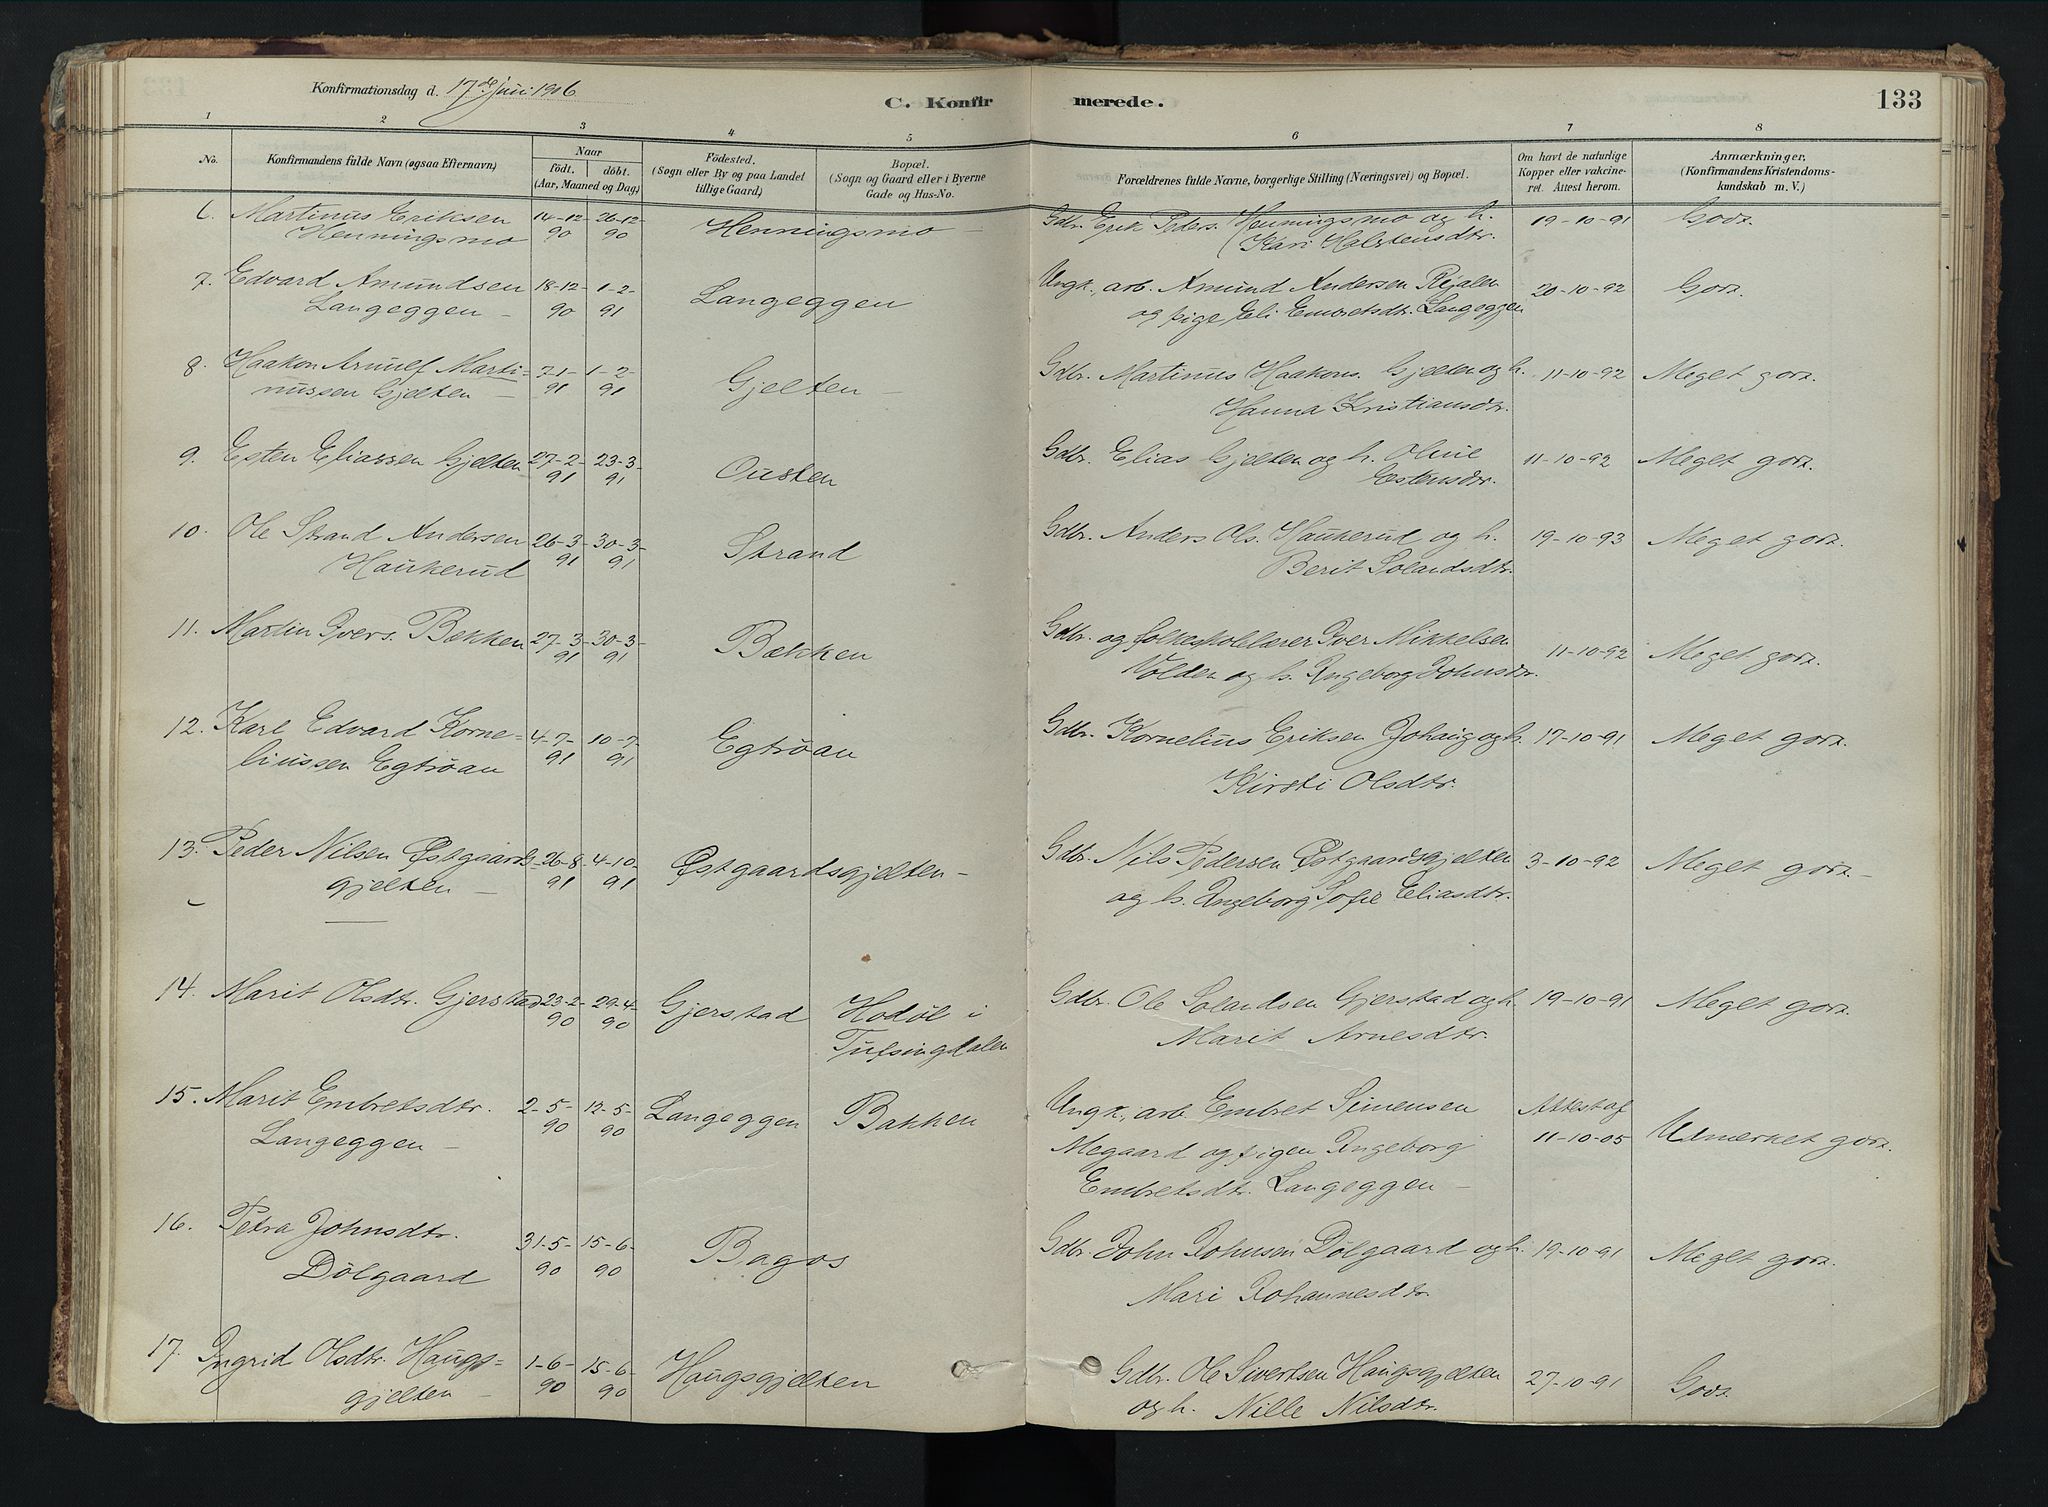 Konfirmationsdag d. 17de juni 1906
C. Konfirmerede.
133
1 2 3 4 5 6 7 8
No. Konfirmandens fulde Navn (ogsaa Efternavn). Naar födt. döbt. (Aar, Maaned og Dag.) Födested. (Sogn eller By og paa Landet tillige Gaard.) Bopæl. (Sogn og Gaard eller i Byerne Gade og Hus-No. Forældrenes fulde Navne, borgerlige Stilling (Næringsvei) og Bopæl. Om havt de naturlige Kopper eller vakcineret. Attest herom. Anmærkninger. (Konfirmandens Kristendomskundskab m. V.)
6. Martinus Eriksen 14-12- 26-12- Henningsmo - Gdbr. Erik Peders. Henningsmo og h. 19-10-91 Godt.
Henningsmo 90 90 Kari Halstensdtr.
7. Edvard Amundsen 18-12- 1-2- Langeggen Ungk., arb. Amund Andersen Rejalen 20-10-92 Godt.
Langeggen - 90 91 og pige Eli Embretsdtr. Langeggen
8. Haakon Arnulf Marti- 7-1- 1-2- Gjelten - Gdbr. Martinus Haakons. Gjelten og h. 11-10-92 Meget godt.
nussen Gjelten - 91 91 Hanna Kristiansdtr.
9. Esten Eliassen Gjelten 27-2- 23-3- Ousten Gdbr. Elias Gjelten og h. Oline 11-10-92 Meget godt.
91 91 Estensdtr.
10. Ole Strand Andersen 26-3- 30-3- Strand Gdbr. Anders Ols. Haukerud og h. 19-10-93 Meget godt.
Haukerud 91 91 Berit Solandsdtr.
11. Martin Ivers. Bækken 27-3- 30-3- Bækken Gdbr. og folkeskolelærer Iver Mikkelsen 11-10-92 Meget godt.
91 91 Volden og h. Ingeborg Johnsdtr.
12. Karl Edvard Korne- 4-7- 10-7- Egtrøan Gdbr. Kornelius Eriksen Johaug og h. 17-10-91 Meget godt.
liussen Egtrøan 91 91 Kirsti Olsdtr.
13. Peder Nilsen Østgaards- 26-8- 4-10- Østgaardsgjelten - Gdbr. Nils Pedersen Østgaardsgjelten 3-10-92 Meget godt -
gjelten - 91 91 og h. Ingeborg Sofie Eliasdtr.
14. Marit Olsdtr. Gjerstad 23-2- 29-4- Gjerstad Hodøl i Gdbr. Ole Solandsen Gjerstad og h. 19-10-91 Meget godt.
90 90 Tufsingdalen Marit Arnesdtr.
15. Marit Embretsdtr. 2-5- 12-5- Langeggen Bakken Ungk., arb. Embret Simensen Attest af
Langeggen - 90 90 Megaard og pigen Ingeborg 11-10-05 Udmerket godt.
Embretsdtr. Langeggen -
16. Petra Johnsdtr. 31-5- 15-6- Bagos Gdbr. John Johnsen Dølgaard og h. 19-10-91 Meget godt.
Dølgaard 90 90 Mari Johannesdtr.
17. Ingrid Olsdtr. Haugs- 1-6- 15-6- Haugsgjelten Gdbr. Ole Sivertsen Haugsgjelten 27-10-91 Godt
gjelten - 90 90 og h. Nille Nilsdtr.